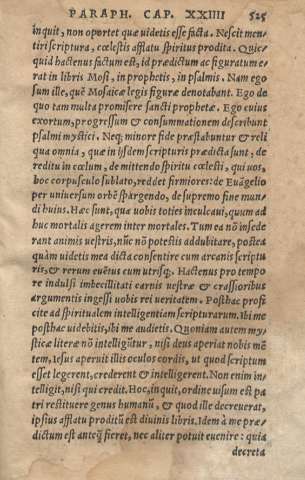 PARAPH. CAP. XXIIII 525
inquit, non oportet quæ uidetis esse facta. Nescit men-
tiri scriptura, cœlestis afflatu spiritus prodita. Quic-
quid hactenus factum est, id prædictum ac figuratum e-
rat in libris Mosi, in prophetis, in psalmis. Nam ego
sum ille, quẽ Mosaicæ legis figuræ denotabant. Ego de
quo tam multa promisere sancti prophetæ. Ego cuius
exortum, progressum & consummationem describunt
psalmi mystici. Neq; minore fide præstabuntur & reli
qua omnia, quæ in ijsdem scripturis prædicta sunt, de
reditu in cœlum, de mittendo spiritu cœlesti, qui uos,
hoc corpusculo sublato, reddet firmiores: de Euãgelio
per uniuersum orbẽ spargendo, de supremo fine mun/
di huius. Hæc sunt, quæ uobis toties inculcaui, quum ad
huc mortalis agerem inter mortales. Tum ea nõ inse de
rant animis uestris, nũc nõ potestis addubitare, postea
quàm uidetis mea dicta consentire cum arcanis scriptu
ris, & rerum euẽtus cum utrisq;. Hactenus pro tempo
re indulsi imbecillitati carnis uestræ & crassioribus
argumentis ingessi uobis rei ueritatem. Posthac profi
cite ad spiritualem intelligentiam scripturarum. Ibi me
posthac uidebitis, ibi me audietis. Quoniam autem my-
sticæ literæ nõ intelligũtur, nisi deus aperiat nobis mẽ
tem, Iesus aperuit illis oculos cordis, ut quod scriptum
esset legerent, crederent & intelligerent. Non enim in-
telligit, nisi qui credit. Hoc, inquit, ordine uisum est pa
tri restituere genus humanũ, & quod ille decreuerat,
ipsius afflatu proditũ est diuinis libris. Idem à me præ-
dictum est anteq̃ fieret, nec aliter potuit euenire: quia
decreta